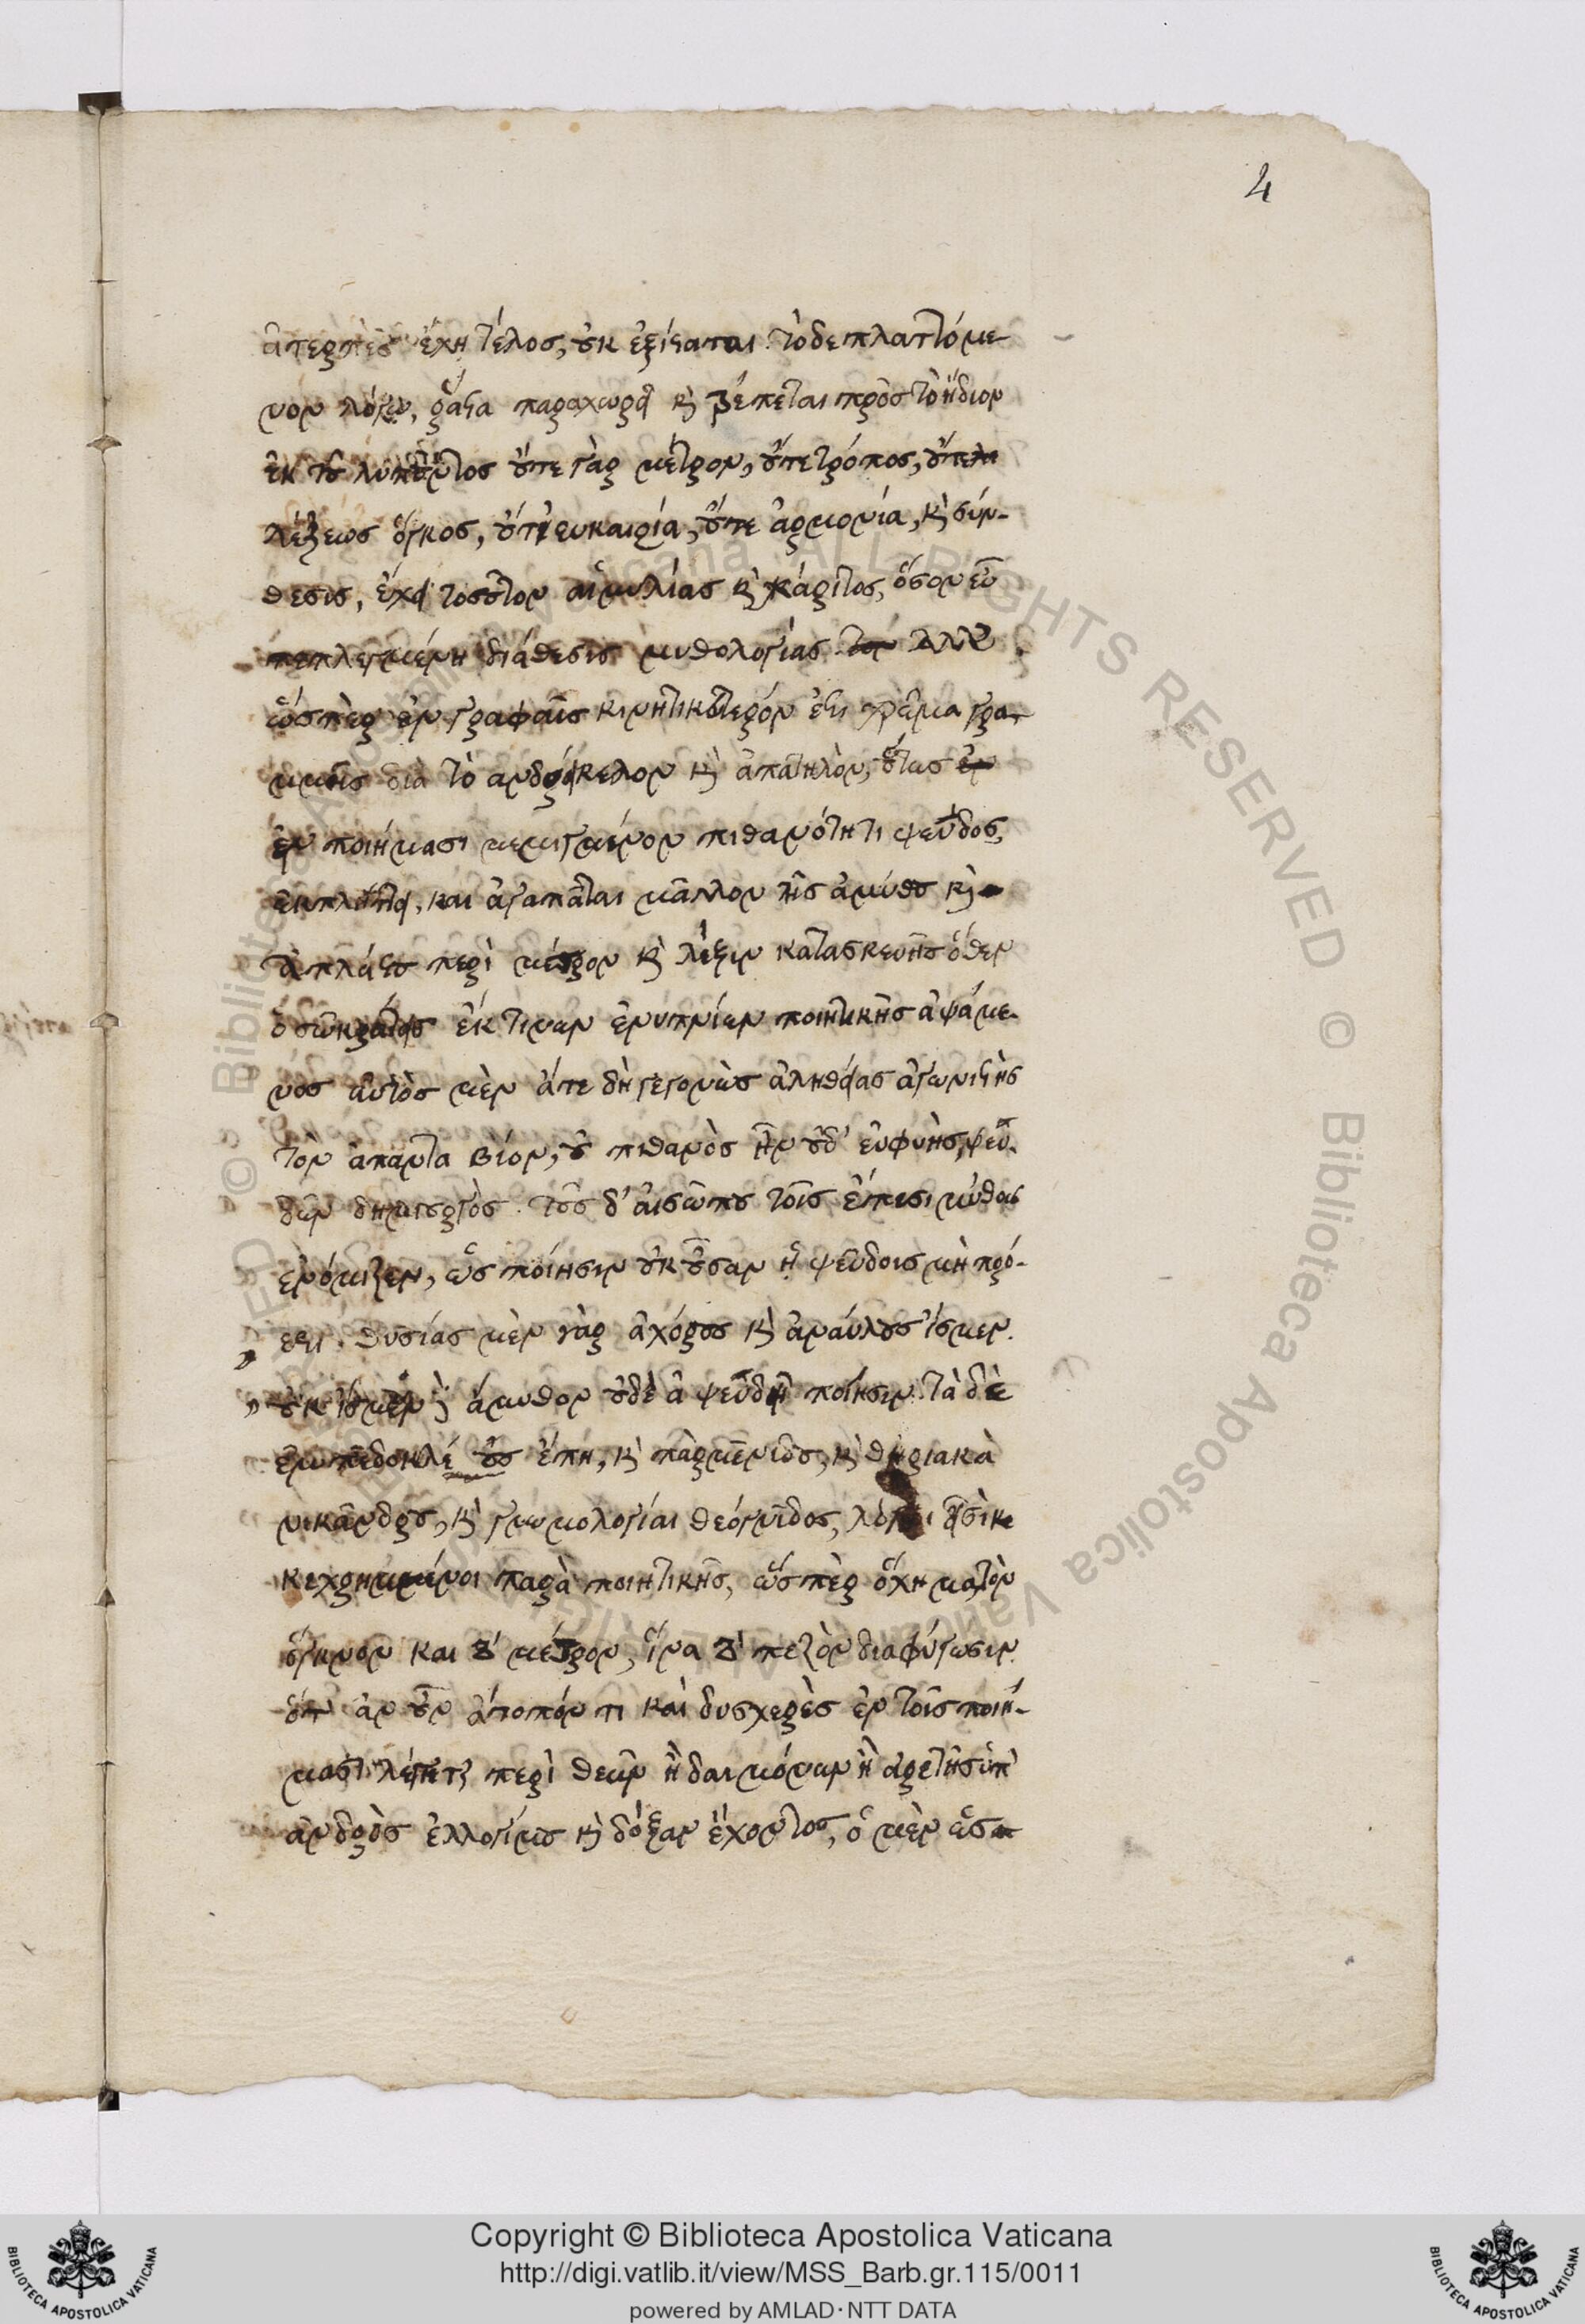 4
ἀτερπὲς ἔχῃ τέλος, οὐκ ἐξίσταται. τὸ δὲ πλαττόμε
νον λόγῳ, ῥᾷστα παραχωρεῖ καὶ τρέπεται πρὸς τὸ ἥδιον
ἐκ τοῦ λυποῦντος οὔτε γὰρ μέτρον, οὔτε τρόπος, οὔτε
λέξεως ὄγκος, οὔτ' εὐκαιρία, οὔτε ἁρμονία, καὶ σύν-
θεσις, ἔχει τοσοῦτον αἱμυλίας καὶ χάριτος, ὅσον εὖ
πεπλεγμένη διάθεσις μυθολογίας. ἀλλ'
ὥσπερ ἐν γραφαῖς κινητικώτερόν ἐστι χρῶμα γρα-
μμῆς διὰ τὸ ἀνδρείκελον καὶ ἀπατηλὸν, οὕτως
ἐν ποιήμασι μεμιγμένον πιθανότητι ψεῦδος,
ἐκπλήττει, καὶ ἀγαπᾶται μᾶλλον τῆς ἀμύθου καὶ
ἀπλάστου περὶ μέτρον καὶ λέξιν κατασκευῆς ὅθεν
ὁ σωκράτης ἔκ τινων ἐνυπνίων ποιητικῆς ἁψάμε-
νος αὐτὸς μὲν ἅτε δὴ γεγονὼς ἀληθείας ἀγωνιστὴς
τὸν ἅπαντα βίον, οὐ πιθανὸς ἦν οὐδ' εὐφυὴς, ψευ-
δῶν δημιουργὸς. τοὺς δ' αἰσώπου τοῖς ἔπεσι μύθους
ἐνόμιζεν, ὡς ποίησιν οὐκ οὖσαν ᾗ ψεῦδος μὴ πρό-
εστι. θυσίας μὲν γὰρ ἀχόρους καὶ ἀναύλους ἴσμεν.
οὐκ ἴσμεν δὲ ἄμυθον οὐδὲ ἀψευδῆ ποίησιν. τὰ δὲ
ἐμπεδοκλέους ἔπη, καὶ παρμενίδου, καὶ θηριακὰ
νικάνδρου, καὶ γνωμολογίαι θεόγνιδος, λόγοι εἰσὶ
κεχρημένοι παρὰ ποιητικῆς, ὥσπερ ὄχημα τὸν
ὄγκον καὶ τὸ μέτρον, ἵνα τὸ πεζὸν διαφύγωσιν.
ὅτ' ἂν οὖν ἄτοπόν τι καὶ δυσχερὲς ἐν τοῖς ποιή-
μασι λέγηται περὶ θεῶν ἢ δαιμόνων ἢ ἀρετῆς ὑπ'
ἀνδρὸς ἐλλογίμου καὶ δόξαν ἔχοντος, ὁ μὲν ὡς
Copyright © Biblioteca Apostolica Vaticana
http://digi.vatlib.it/view/MSS_Barb.gr.115/0011
powered by AMLAD·NTT DATA